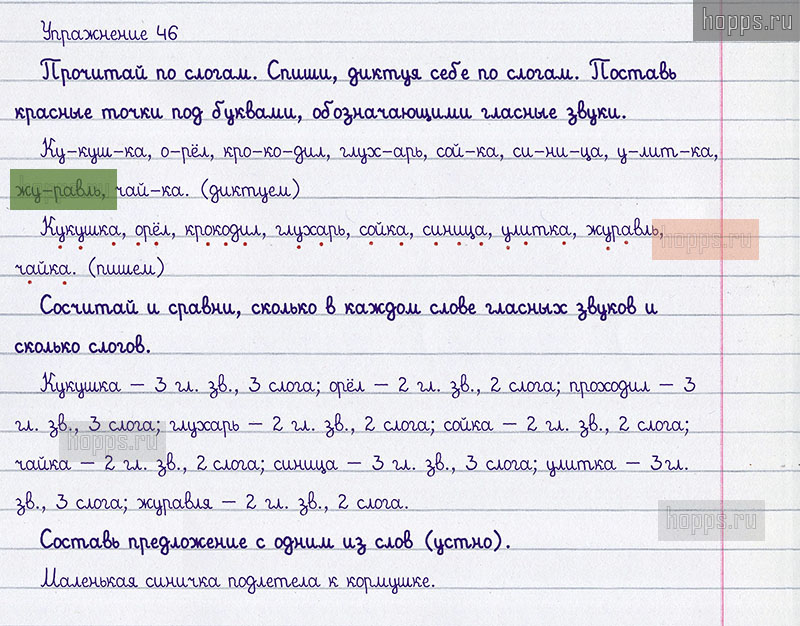 hopps.ru
Упражнение 46
Прочитай по слогам. Спиши, диктуя себе по слогам. Поставь
красные точки под буквами, обозначающими гласные звуки.
Ку-куш-ка, о-рёл, кро-ко-дил, глух-арь, сой-ка, си-ни-ца, у-лит-ка,
жу-равль, чай-ка. (диктуем)
Кукушка, орёл, крокодил, глухарь, сойка, синица, улитка, журавль,
hopps.ru
чайка. (пишем)
Сосчитай и сравни, сколько в каждом слове гласных звуков и
сколько слогов.
Кукушка – 3 гл. зв., 3 слога; орёл – 2 гл. зв., 2 слога; проходил – 3
гл. зв., 3 слога; глухарь – 2 гл. зв., 2 слога; сойка – 2 гл. зв., 2 слога;
hopps.ru
чайка – 2 гл. зв., 2 слога; синица – 3 гл. зв., 3 слога; улитка – 3гл.
зв., 3 слога; журавля – 2 гл. зв., 2 слога.
hopps.ru
Составь предложение с одним из слов (устно).
Маленькая синичка подлетела к кормушке.